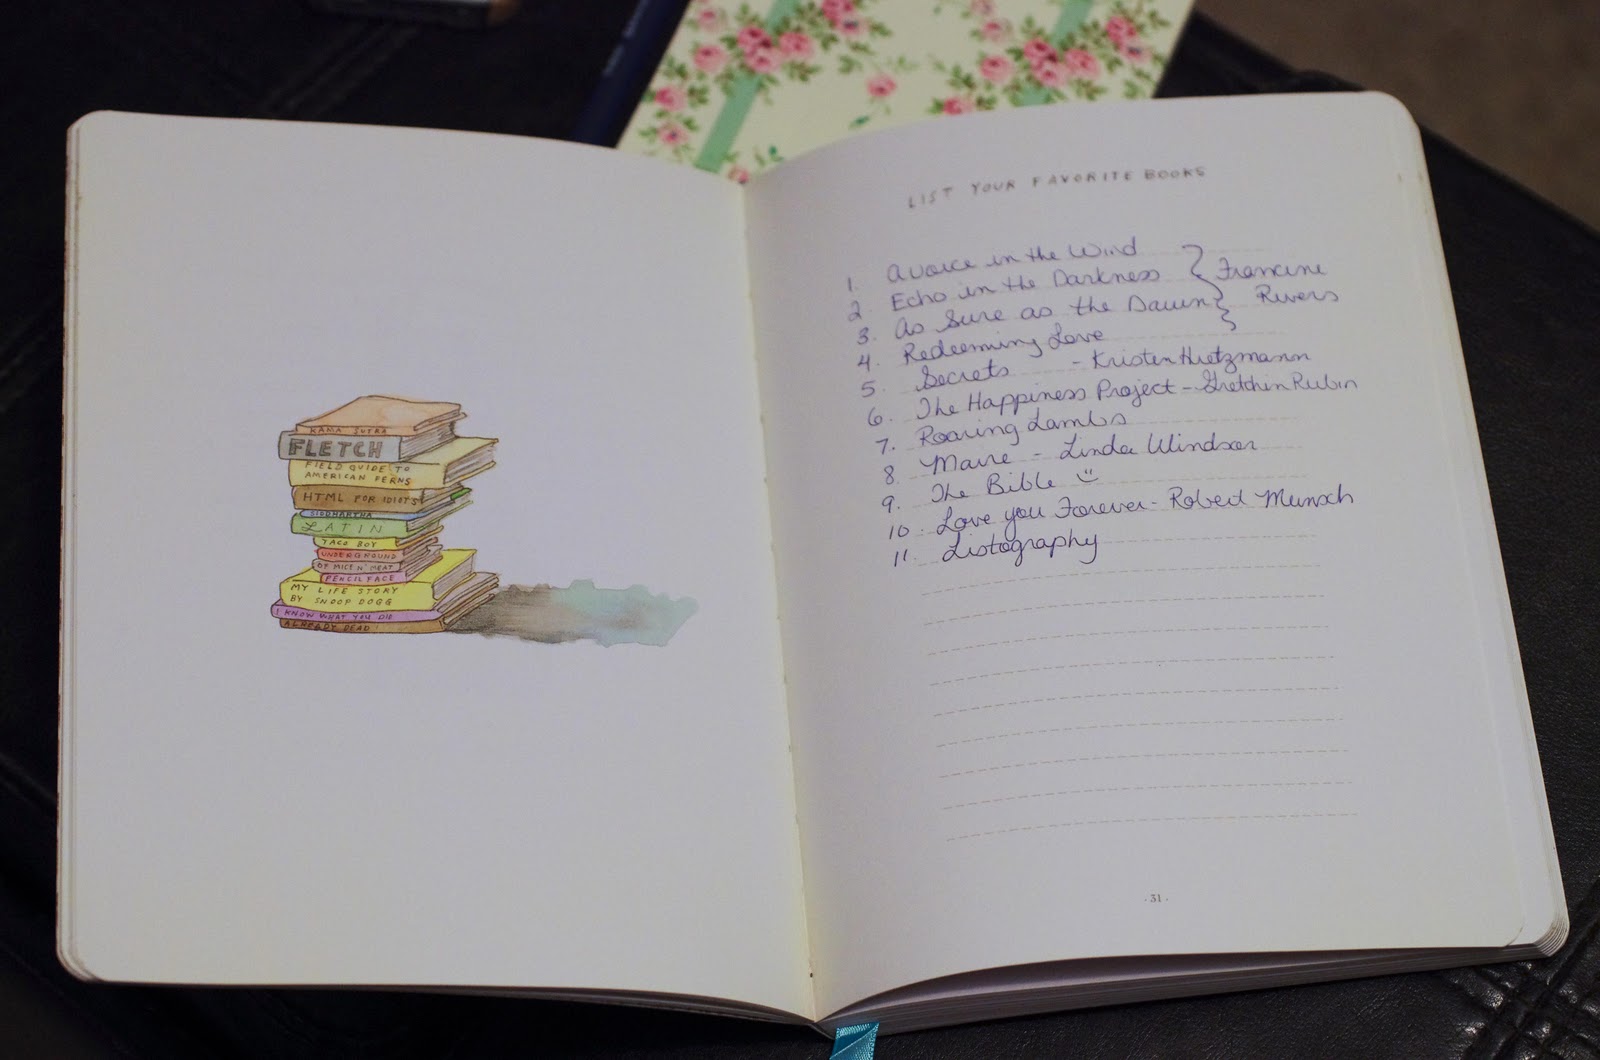 KAMA SUTRA
FLETCH
FIELD GUIDE TO
AMERICAN FERNS
HTML FOR IDIOTS
SIDDHARTHA
LATIN
TACO BOY
UNDERGROUND
OF MICE N' MEAT
PENCIL FACE
MY LIFE STORY
BY SNOOP DOGG
I KNOW WHAT YOU DIE
ALREADY DEAD
LIST YOUR FAVORITE BOOKS
1. A Voice in the Wind
2. Echo in the Darkness } Francine
3. As Sure as the Dawn } Rivers
4. Redeeming Love
5. Secrets - Kristen Hietzmann
6. The Happiness Project - Gretchin Rubin
7. Roaring Lambs
8. Maire - Linda Windsor
9. The Bible ☺
10. Love you Forever - Robert Munsch
11. Listography
· 31 ·